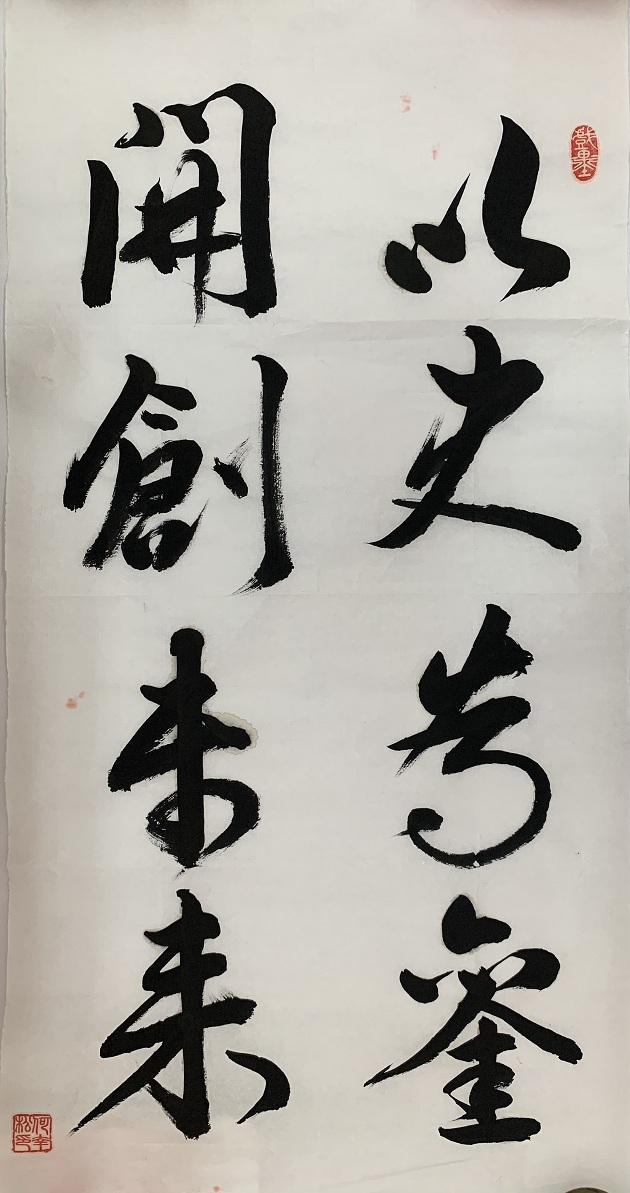 以史為鑒
開創未来